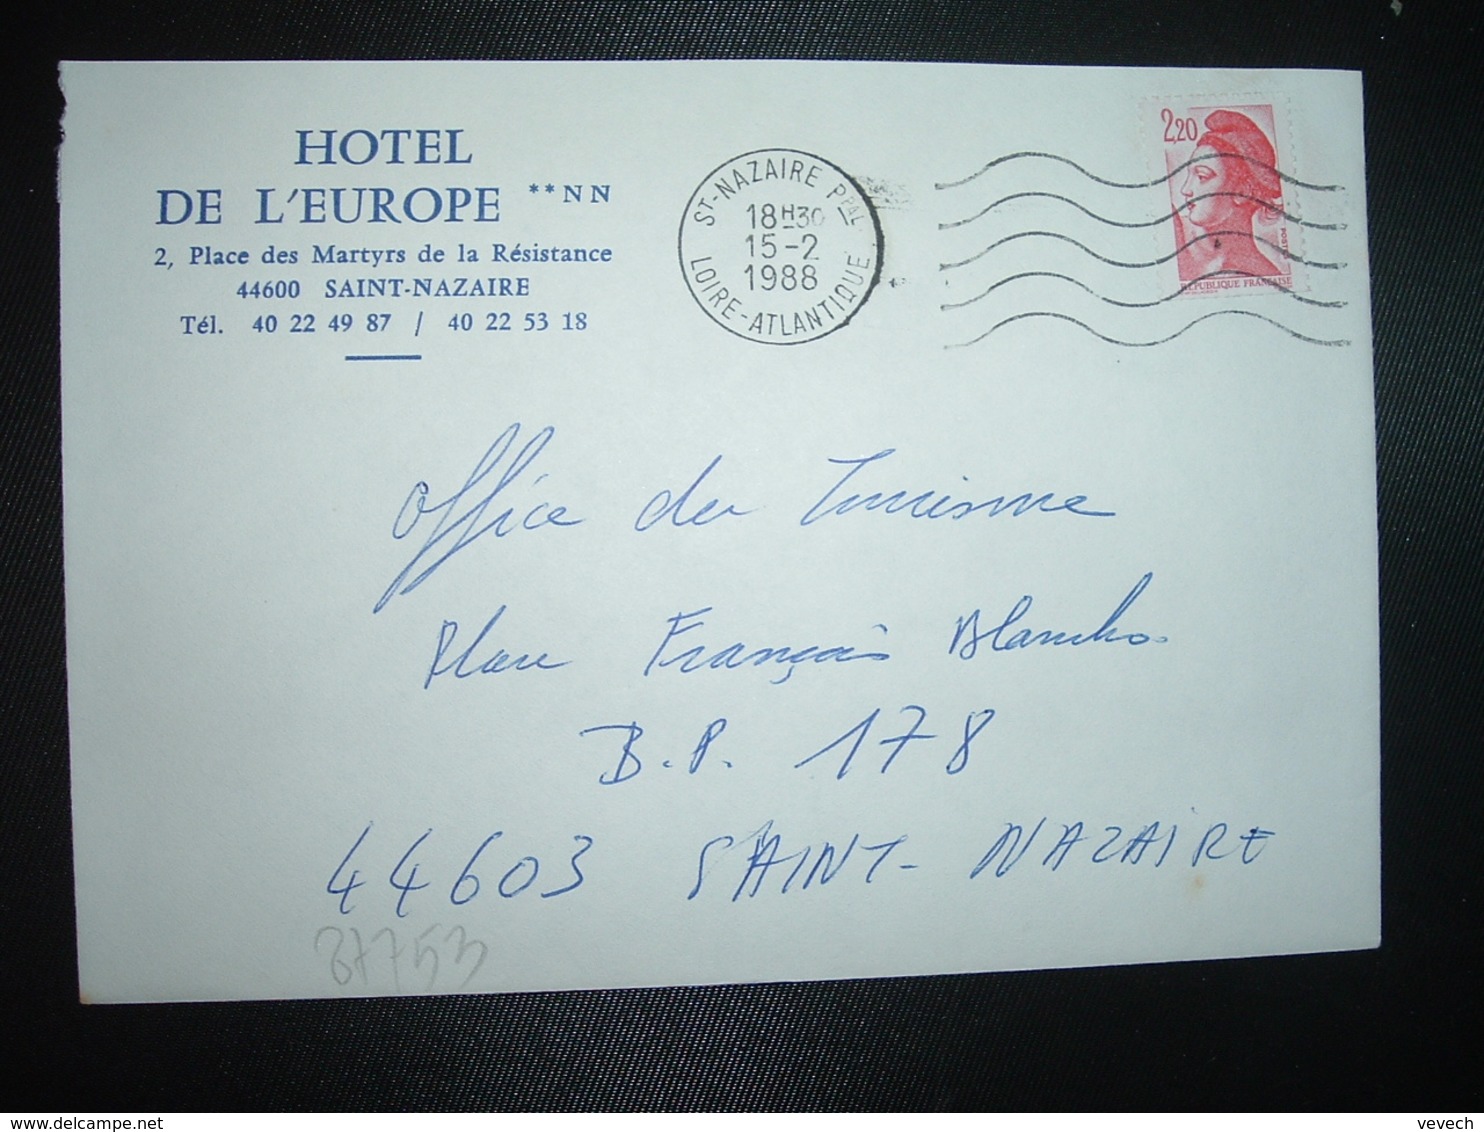 HOTEL
DE L'EUROPE **NN
2, Place des Martyrs de la Résistance
44600 SAINT-NAZAIRE
Tél. 40 22 49 87 / 40 22 53 18
ST-NAZAIRE PPAL
18H30
15-2
1988
LOIRE-ATLANTIQUE
2,20
POSTES
REPUBLIQUE FRANÇAISE
Office du Tourisme
Place François Blancho
B.P. 178
44603 SAINT-NAZAIRE
37753
delcampe.net
vevech